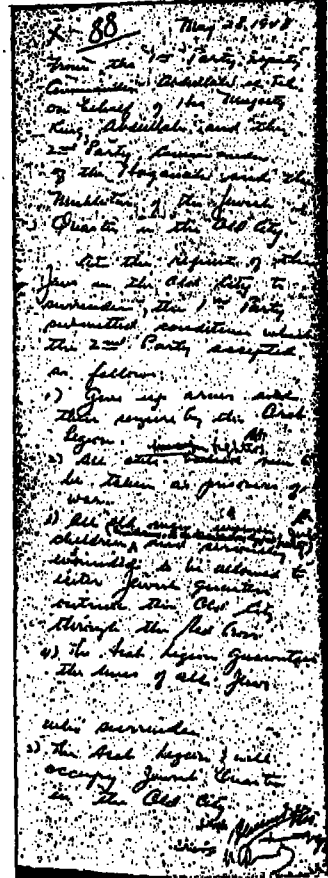 X- 88 May 28, 1948
From the 1st Party, deputy
Commander Abdullah el Tel
on behalf of His Majesty
King Abdullah, and the
2nd Party Commander
of the Haganah and the
Mukhtar of the Jewish
Quarter in the Old City
At the request of the
Jews in the Old City to
surrender, the 1st Party
submitted conditions which
the 2nd Party accepted
as follows
1) Give up arms and
their seizure by the Arab
Legion.
2) All able men to
be taken as prisoners of
war.
3) All old men, women,
children, and seriously
wounded to be allowed to
enter Jewish quarters
outside the Old City
through the Red Cross
4) The Arab Legion guarantees
the lives of all Jews
who surrender
5) The Arab Legion will
occupy Jewish Quarter
in the Old City